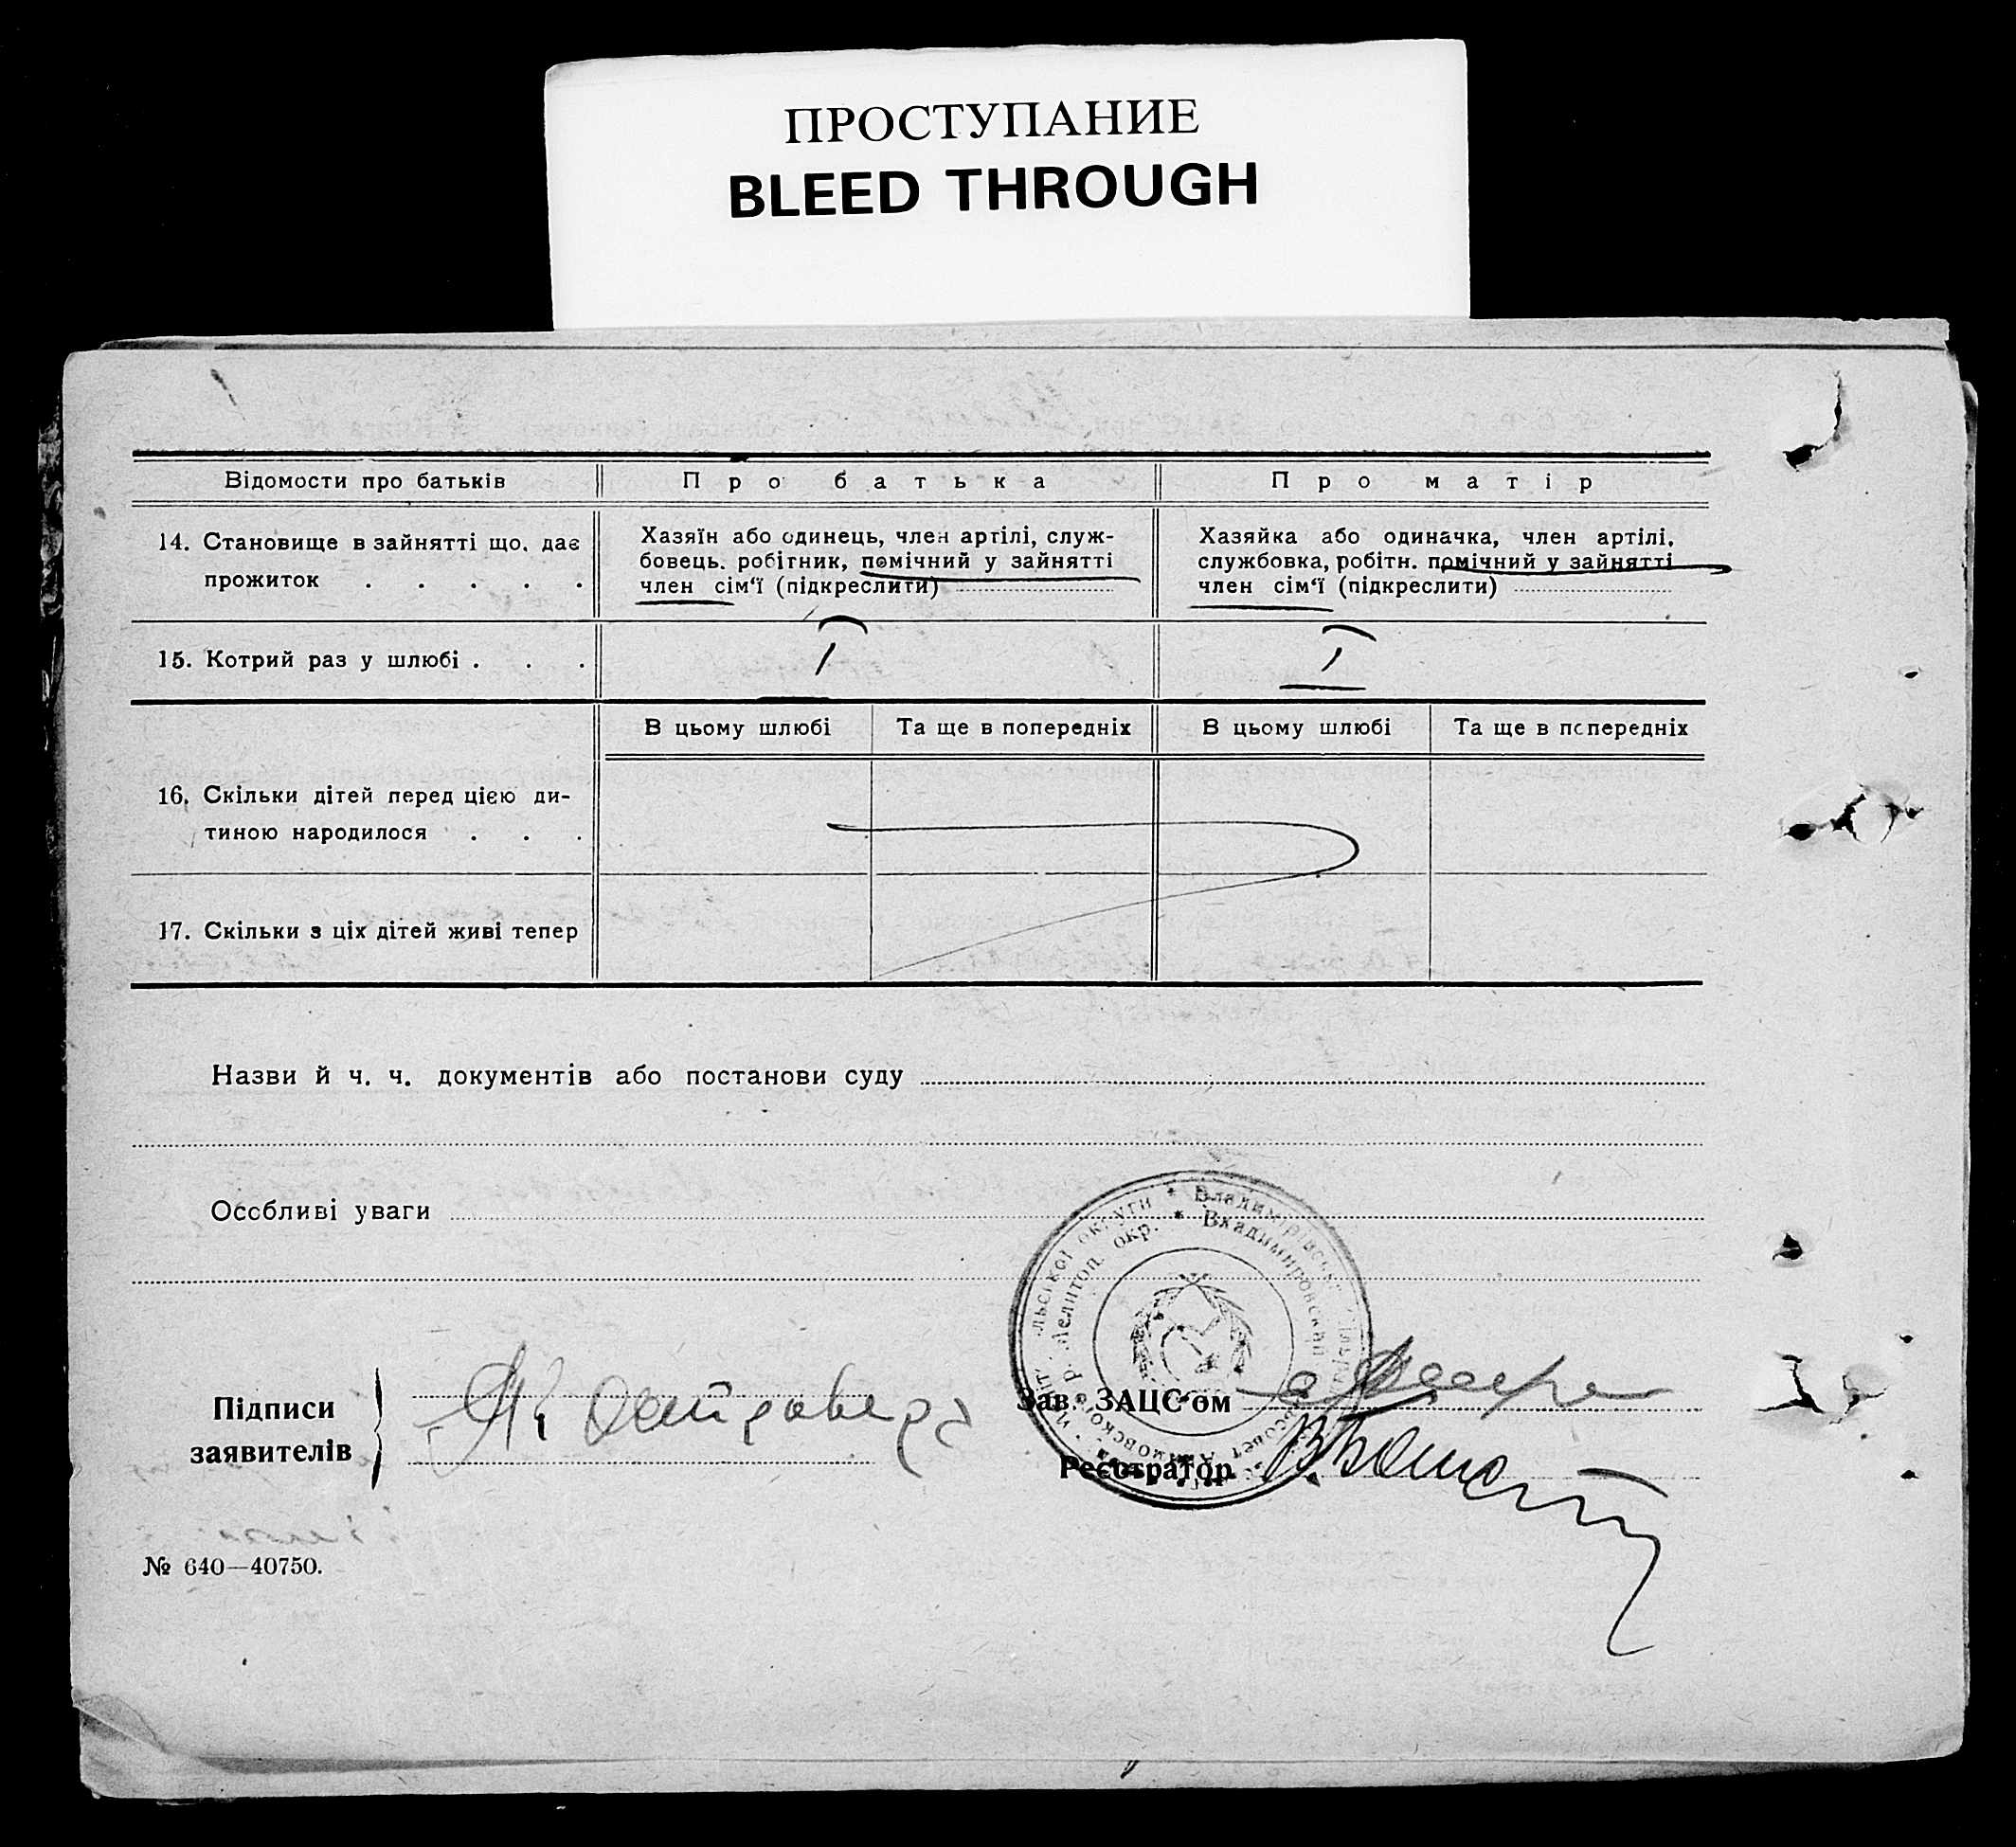 ПРОСТУПАНИЕ
BLEED THROUGH
Відомости про батьків
Про батька
Про матір
14. Становище в зайнятті що, дає
прожиток . . . . .
Хазяїн або одинець, член артілі, служ-
бовець. робітник, помічний у зайнятті
член сім‘ї (підкреслити)
Хазяйка або одиначка, член артілі,
службовка, робітн. помічний у зайнятті
член сім‘ї (підкреслити)
15. Котрий раз у шлюбі . . .
I
I
В цьому шлюбі
Та ще в попередніх
В цьому шлюбі
Та ще в попередніх
16. Скільки дітей перед цією ди-
тиною народилося . . .
17. Скільки з ціх дітей живі тепер
Назви й ч. ч. документів або постанови суду
Особливі уваги
Підписи
заявителів
Зав. ЗАЦС-ом
Реєстратор
№ 640—40750.